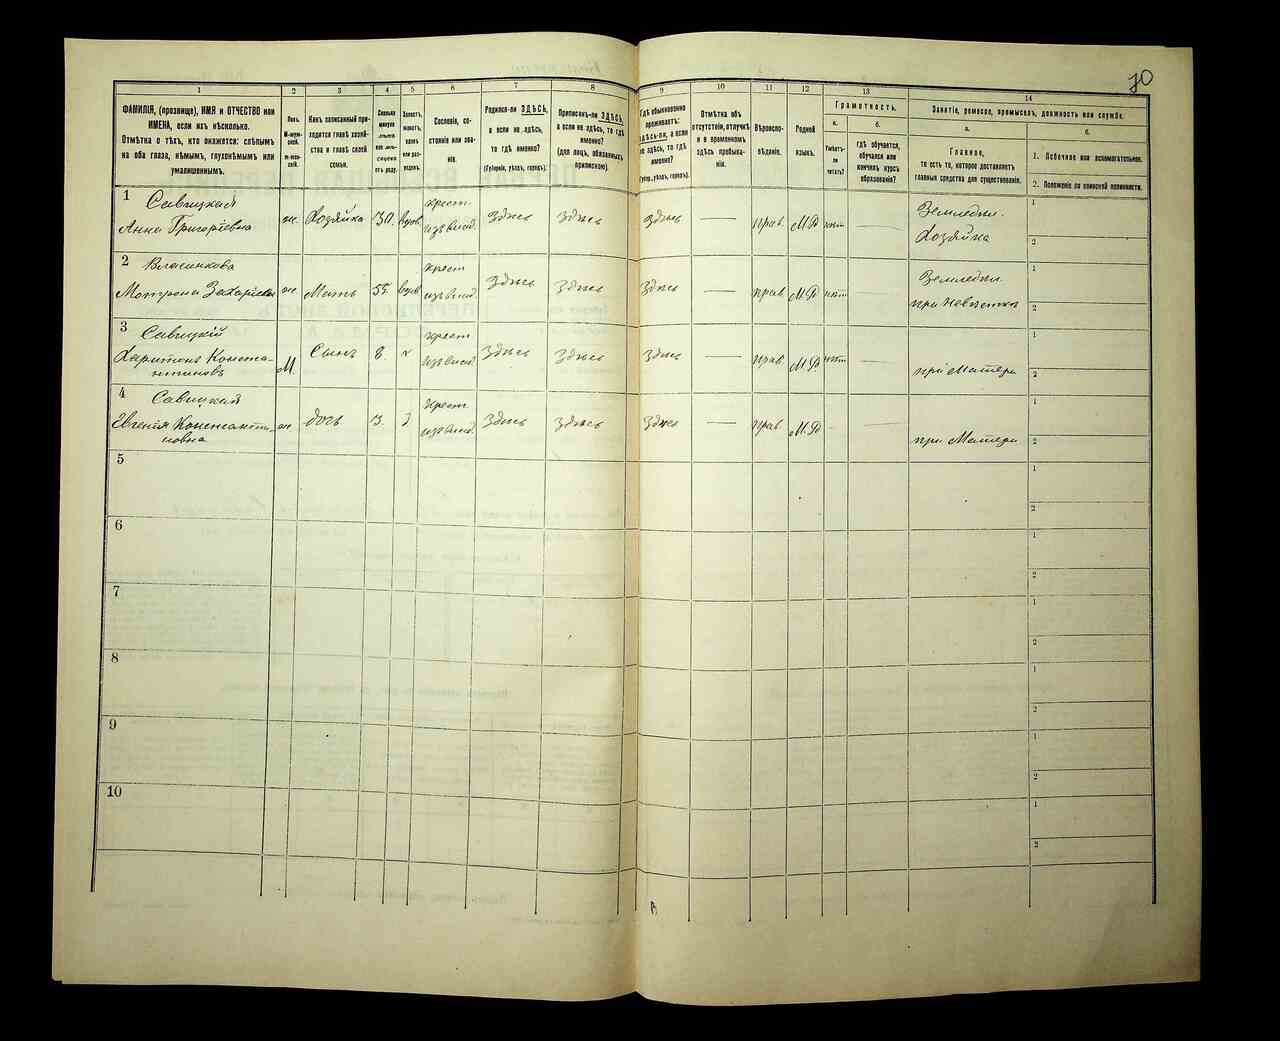 70
1
2
3
4
5
6
7
8
9
10
11
12
13
14
ФАМИЛІЯ, (прозвище), ИМЯ и ОТЧЕСТВО или
ИМЕНА, если ихъ нѣсколько.
Отмѣтка о тѣхъ, кто окажется: слѣпымъ
на оба глаза, нѣмымъ, глухонѣмымъ или
умалишеннымъ.
Полъ.
М-муж-
ской.
ж-жен-
скій.
Какъ записанный при-
ходится главѣ хозяй-
ства и главѣ своей
семьи.
Сколько
минуло
лѣтъ
или мѣ-
сяцевъ
отъ роду.
Холостъ,
женатъ,
вдовъ
или раз-
веденъ.
Сословіе, со-
стояніе или зва-
ніе.
Родился-ли ЗДѢСЬ,
а если не здѣсь,
то гдѣ именно?
(Губернія, уѣздъ, городъ).
Приписанъ-ли ЗДѢСЬ,
а если не здѣсь, то гдѣ
именно?
(для лицъ, обязанныхъ
припискою).
Гдѣ обыкновенно
проживаетъ:
здѣсь-ли, а если
не здѣсь, то гдѣ
именно?
(Губер., уѣздъ, городъ).
Отмѣтка объ
отсутствіи, отлучкѣ
и о временномъ
здѣсь пребыва-
ніи.
Вѣроиспо-
вѣданіе.
Родной
языкъ.
Грамотность.
а.
Умѣетъ-
ли
читать?
б.
гдѣ обучается,
обучался или
кончилъ курсъ
образованія?
Занятіе, ремесло, промыселъ, должность или служба.
а.
Главное,
то есть то, которое доставляетъ
главныя средства для существованія.
б.
1. Побочное или вспомогательное.
2. Положеніе по воинской повинности.
1 Савицкая
Анна Григоріевна ж. Хозяйка 30. вдов. крест. изъ влад. Здѣсь Здѣсь Здѣсь — прав. М.Р. нѣт — Земледѣл. Хозяйка 1 2
2 Власенкова
Матрона ж. Мать 55. вдов. крест. изъ влад. Здѣсь Здѣсь Здѣсь — прав. М.Р. нѣт — Земледѣл. при невѣстке 1 2
3 Савицкій
Харитонъ Конста-
нтиновъ М. Сынъ 8. х крест. изъ влад. Здѣсь Здѣсь Здѣсь — прав. М.Р. нѣт — при Матери 1 2
4 Савицкая
Евгенія Константи-
новна ж. дочь 3. крест. изъ влад. Здѣсь Здѣсь Здѣсь — прав. М.Р. при Матери 1 2
5 1 2
6 1 2
7 1 2
8 1 2
9 1 2
10 1 2